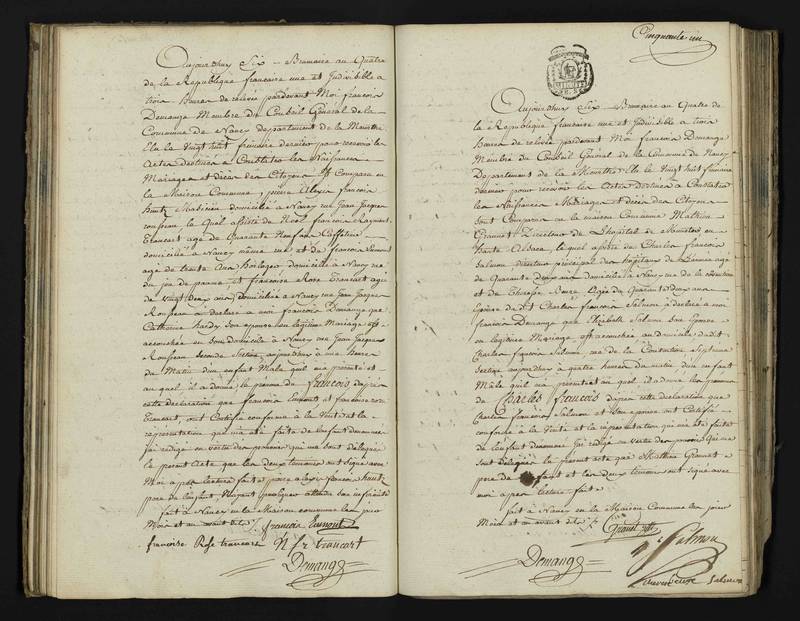 Aujourdhuy Six Brumaire an Quatre
de la Republique francaise une et Indivisible a
trois heures de relevée pardevant Moi francois
Demange Membre du Conseil Général de la
Commune de Nancy département de la Meurthe
Elu le Vingt huit frimaire dernier pour recevoir les
Actes destinés a Constater les Naissances
Mariages et décès des Citoyens est Comparu en
la Maison Commune, pierre francois
domicilié a Nancy rue Jean Jacques
rousseau le quel assisté de Noel francois
trancart age de Quarante
domicilié a Nancy même rue et de francois
age de trente ans horloger domicilié a Nancy rue
du jeu de paume et francoise Rose trancart agée
de Vingt ans domiciliée a Nancy rue Jean Jacques
Rousseau a déclaré a moi francois Demange que
Catherine hardy son epouse en légitime Mariage est
accouchée en son domicile a Nancy rue Jean Jacques
Rousseau Seconde Section aujourdhuy a une heure
du Matin d'un enfant Mâle quil ma présenté et
au quel il a donné le prénom de francois dapres
cette déclaration que francois et francoise rose
trancart, ont Certifié conforme a la Vérité et la
représentation qui ma été faite de lenfant dénommé
jai rédigé en vertu des pouvoirs qui me sont délégués
le present Acte que les deux temoins ont signé avec
Moi apres lecture faite francois
pere de lenfant
fait a Nancy en la Maison commune les jour
Mois et an avant dits francois
francoise Rose trancart N fr trancart
Demange
Cinquante un
Aujourdhuy Six Brumaire an Quatre de
la République francaise une et Indivisible a trois
heures de relevée pardevant Moi francois Demange
Membre du Conseil Général de la Commune de Nancy
Département de la Meurthe Elu le Vingt huit frimaire
dernier pour recevoir les Actes destinés a Constater
les Naissances Mariages et décès des Citoyens
sont Comparu en la maison Commune Mathieu
Directeur de l'hopital de
haute Alsace, le quel assisté de Charles francois
Salmon directeur principal des hopitaux de agé
de Quarante ans domicilié a Nancy rue de la
et de Therese agée de Quarante deux ans
Epouse de dt Charles francois Salmon a déclaré a moi
francois Demange que Elisabeth Salmon son Epouse
en légitime Mariage est accouchée au domicile dudit
Charles francois Salmon, rue de la Septieme
Section aujourdhuy a quatre heures du matin d'un enfant
Mâle quil ma présenté et au quel il a donné les prenoms
de Charles francois dapres cette déclaration que
Charles francois Salmon et son epouse ont Certifié
conforme a la Vérité et la représentation qui ma été faite
de lenfant dénommé jai redigé en vertu des pouvoirs qui me
sont délégués le present acte que Mathieu
pere de lenfant et les deux temoins ont signé avec
moi apres lecture faite
fait a Nancy en la Maison Commune les jour
Mois et an avant dits
Salmon
Demange